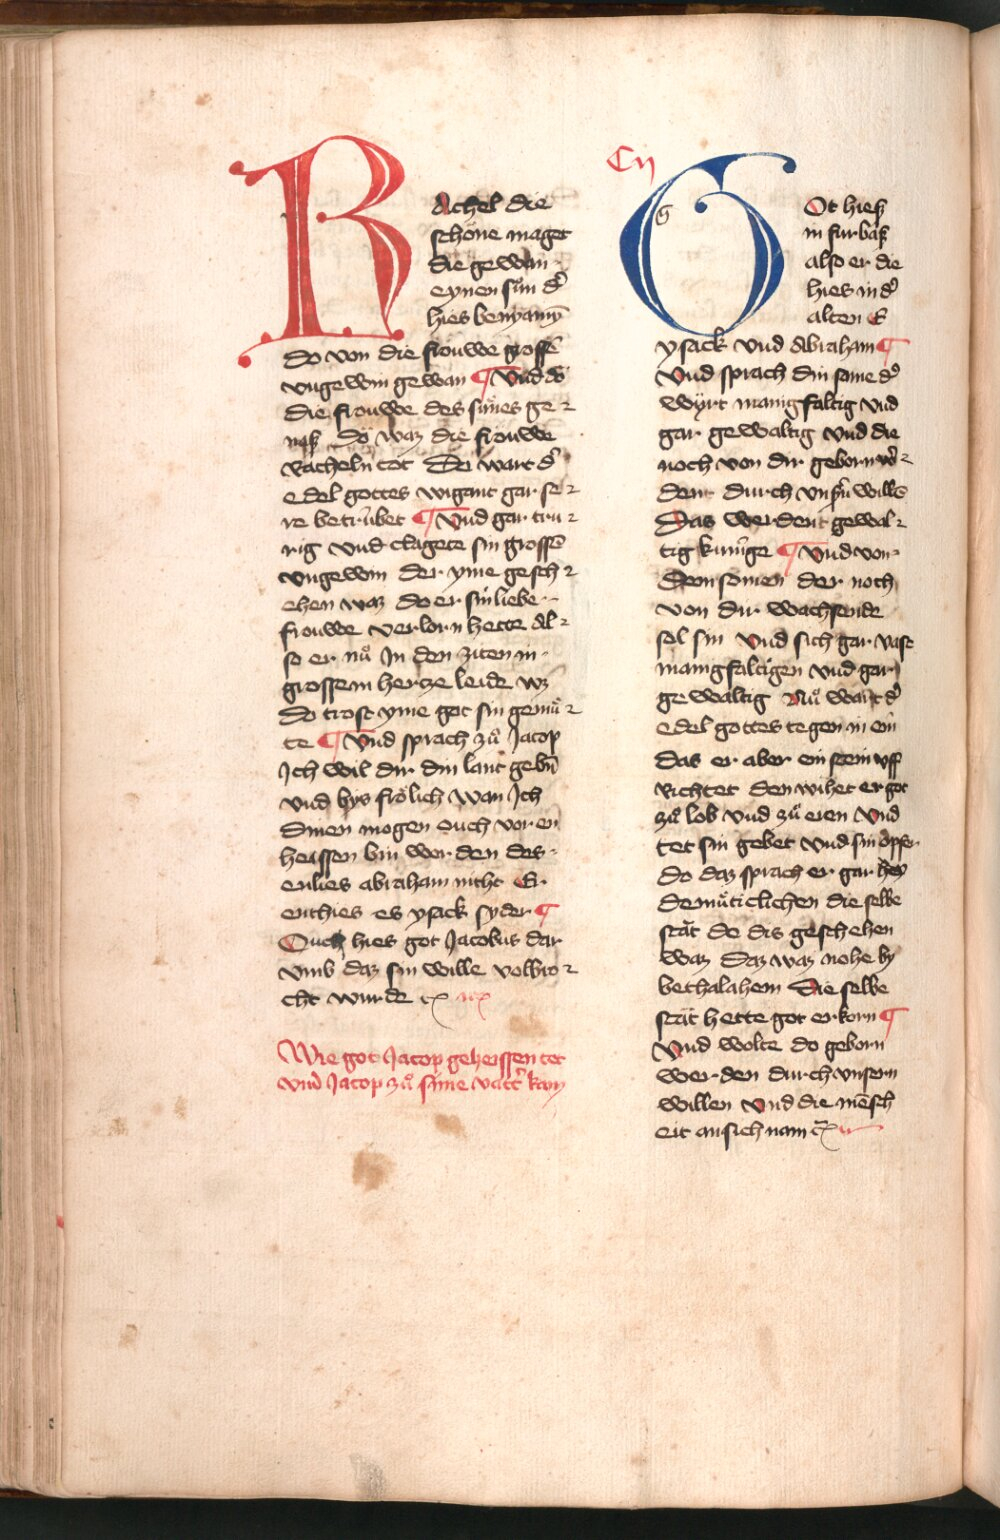 Rachel die
schöne maget
die gewan
eynen sůn dˀ
hies benyamyn̄
do von die frouwe grossē
vngewin gewan ¶ Vnd do
die frouwe des sůnes ge⸗
nas̈ Do waz die frouwe
Racheln tot Do wart dˀ
edel gottes wigant gar se⸗
re betrůbet ¶ Vnd gar tru⸗
rig vnd clagete sin grossē
vngewin der yme gesch⸗
ehen waz do er sin liebe
frouwe verlorn hette Al⸗
so er nů In den ziten in
grossem hertze leide wz
Do trost yme got sin gemů⸗
te ¶ Vnd sprach zů Jacop
Ich wil dir din lant gebn̄
vnd bys frölich wan Ich
dinen mogen ouch vor en
heissen bin werden des
enlies abraham nicht Er
enthies es ysack syder ¶
Ouch hies got Jacobus dar
vmb daz sin wille volbro⸗
cht wurde
Wie got Jacop geheissen tet
vnd Jacop zů sime vattˀ kam
Cij
GOt hies
in furbas
also er die
hies in dˀ
alten E
ysack vnd Abraham ¶
Vnd sprach din some dˀ
wyrt manigfaltig vnd
gar gewaltig vnd die
noch von dir geborn wˀ⸗
dent durch vnsˀn willē
Das werdent gewal⸗
tig kunige ¶ Vnd von
dem somen der noch
von dir wachsende
sol sin Vnd sich gar vast
manigfaltigen vnd gar
gewaltig Nů wart dˀ
edel gottes tegen in ein
das er aber ein stein vff
Richtet den wihet er got
zů lob vnd zů eren Vnd
tet sin gebet Vnd sin opfer
do daz sprach er gar hey
demůticlichen die selbe
stat do dis geschehen
waz Daz waz nohe by
bethalahem Die selbe
stat hette got erkorn ¶
Vnd wolte do geborn
werden durch vnsern
willen Vnd die mēsch
eit an sich nam